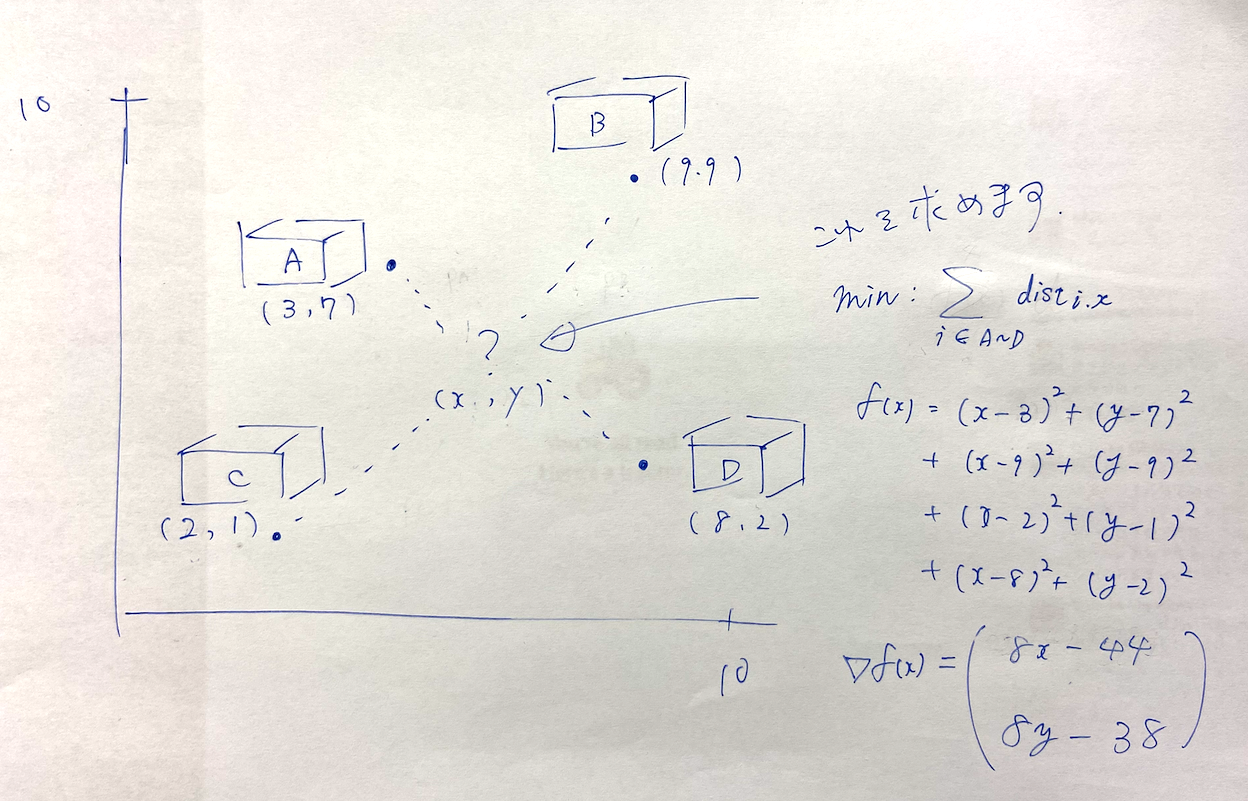 10
B
(9.9)
A
(3,7)
?
(x,y)
C
(2,1)
D
(8.2)
10
これを求めます.
min: ∑ dist i.x
i∈A~D
f(x) = (x-3)²+(y-7)²
+ (x-9)²+(y-9)²
+ (x-2)²+(y-1)²
+ (x-8)²+(y-2)²
∇f(x) = ( 8x-44
8y-38 )